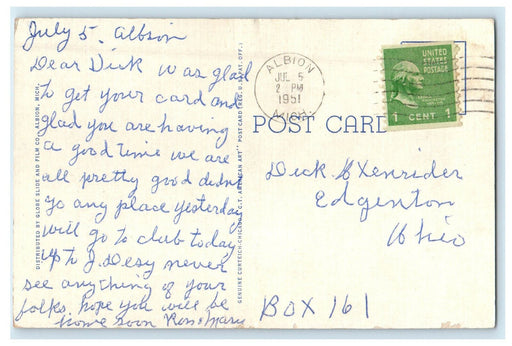 July 5. Albion
Dear Dick was glad
to get your card and
glad you are having
a good time we are
all pretty good didnt
go any place yesterday
will go to club today
never
see anything of your
folks. hope you will be
home soon Rose Mary
DISTRIBUTED BY GLOBE SLIDE AND FILM CO., ALBION, MICH.
GENUINE CURTEICH-CHICAGO "C.T. AMERICAN ART" POST CARD (REG. U.S. PAT. OFF.)
ALBION
JUL 5
2 PM
1951
MICH.
UNITED
STATES
POSTAGE
1 CENT 1
POST CARD
Dick
Edgerton
Ohio
BOX 161